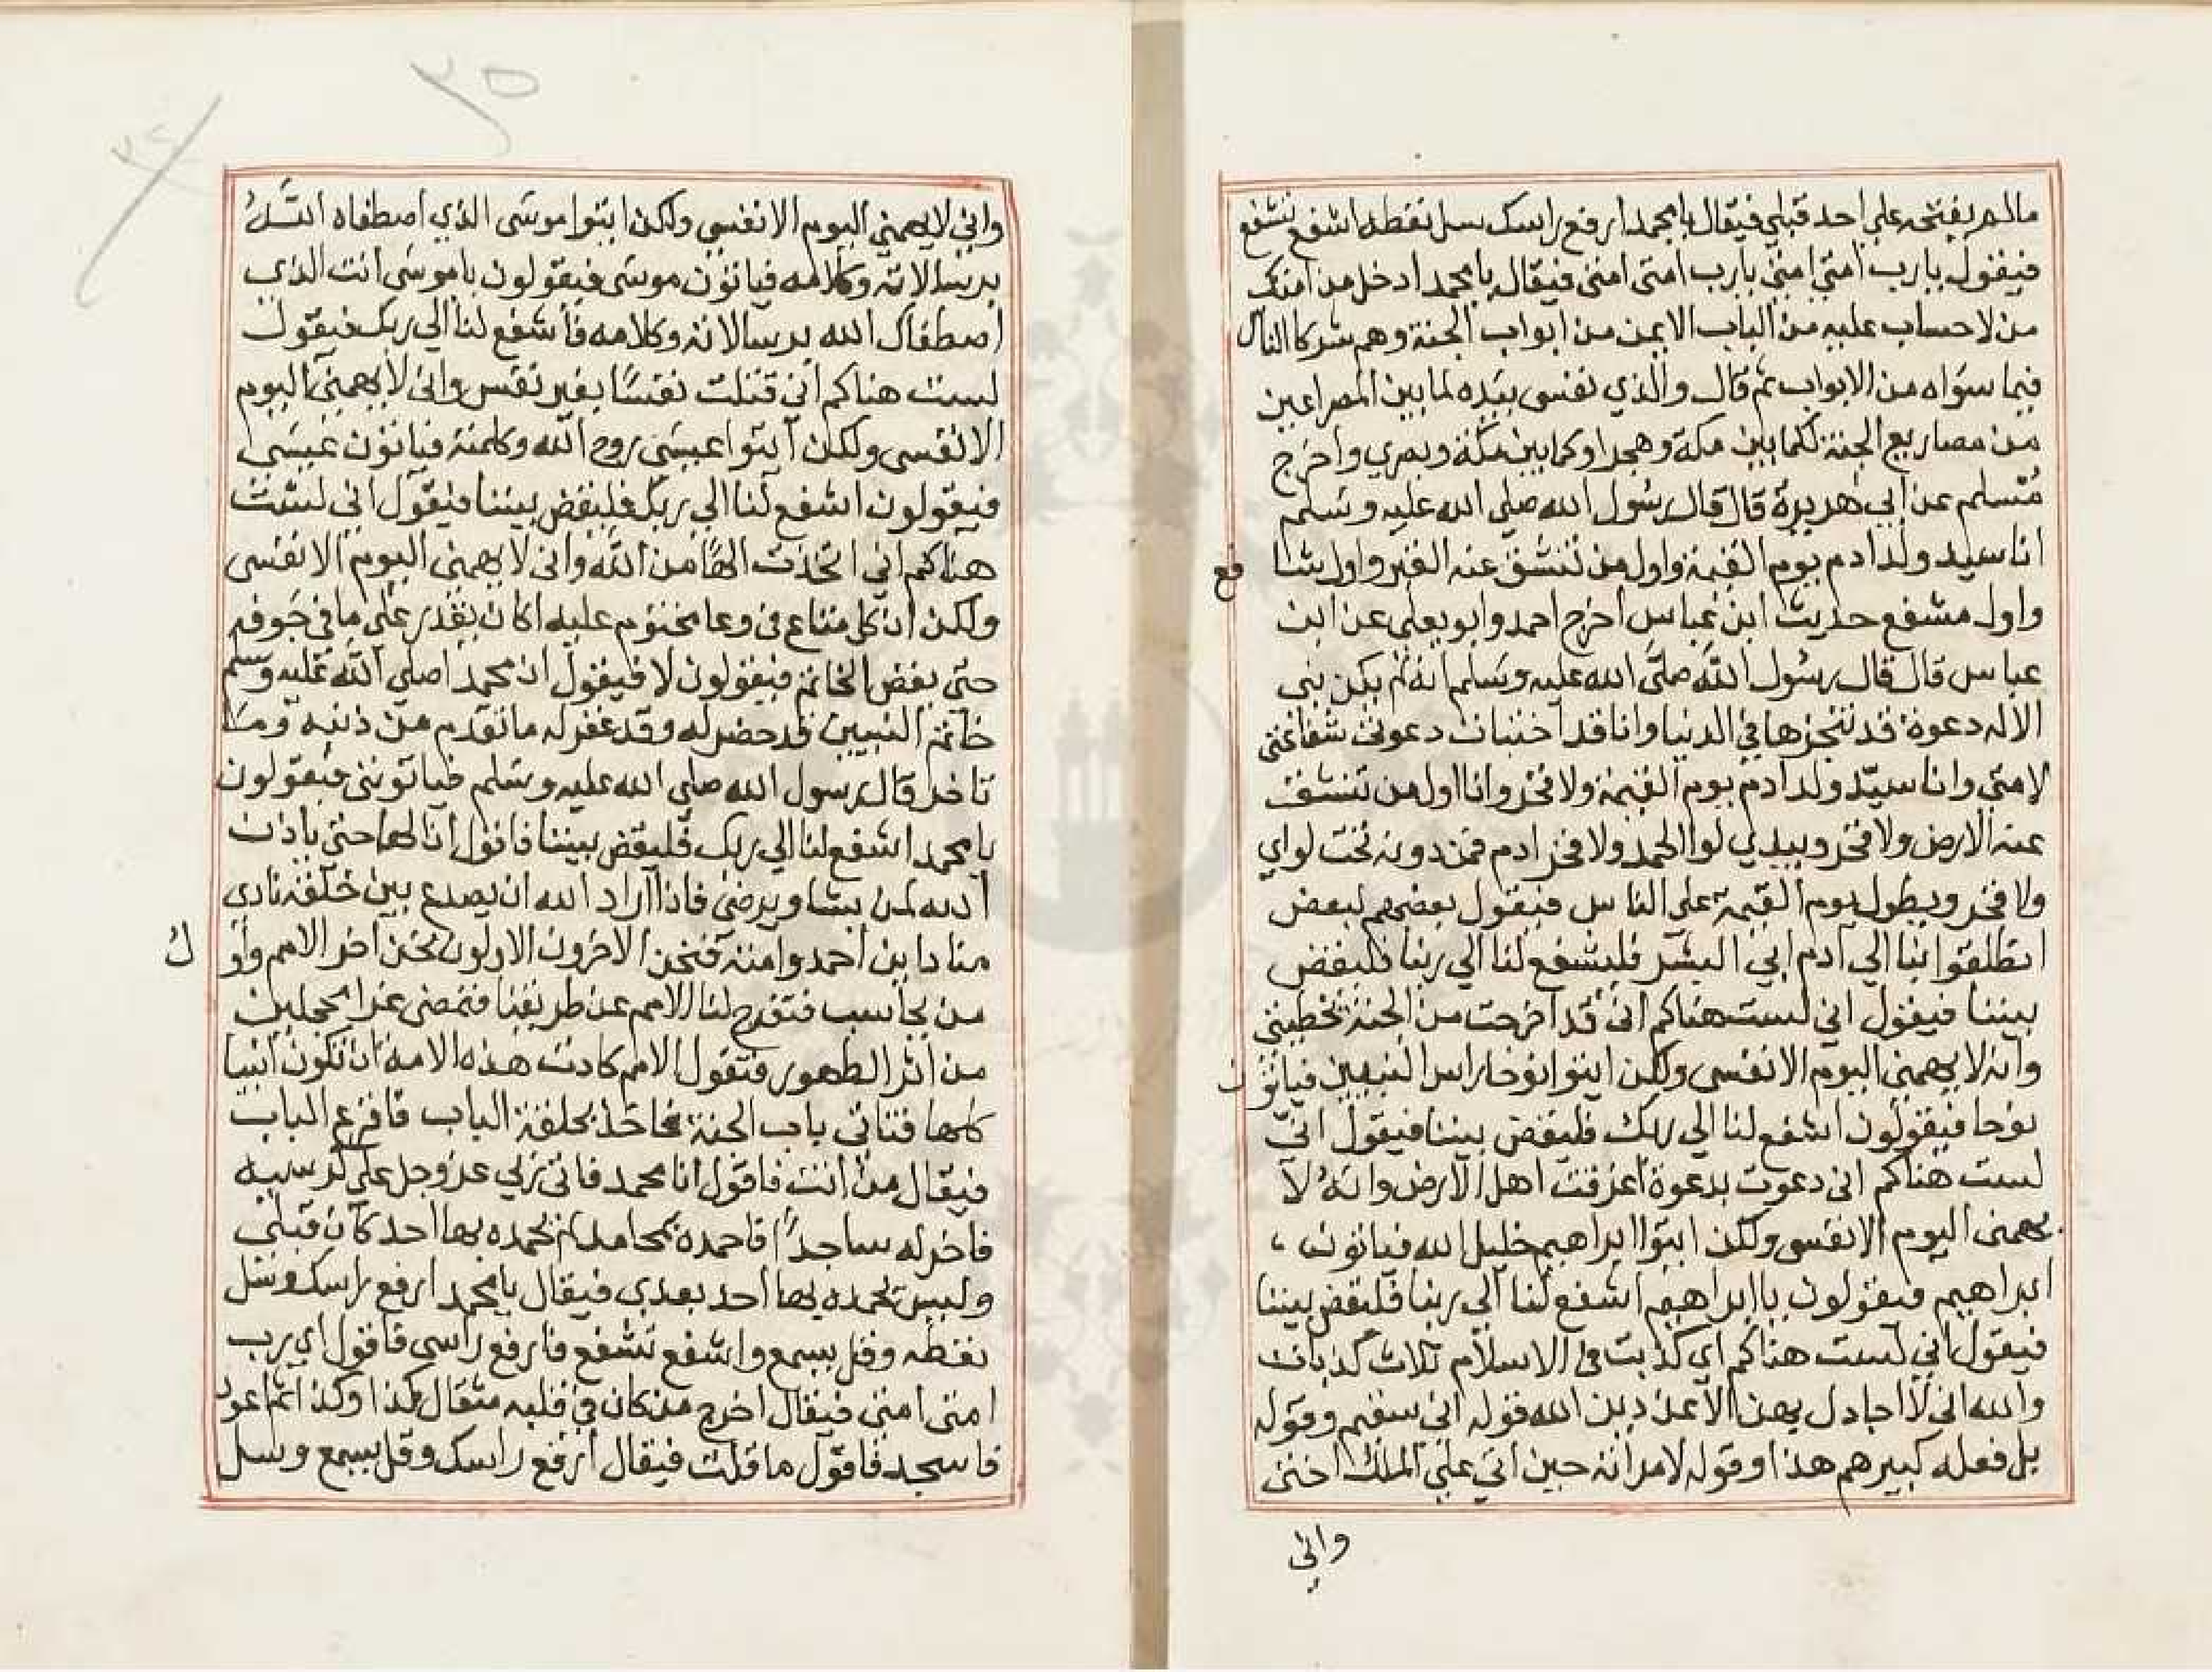 مالم يفتحه علي احد قبلي فيقال يا محمد ارفع راسك سل تعطه اشفع تشفع
فيقول يا رب امتي امتي يا رب امتي امتي فيقال يا محمد ادخل من امتك
من لا حساب عليه من الباب الايمن من ابواب الجنة وهم شركا الناس
فيما سواه من الابواب ثم قال والذي نفسي بيده لما بين المصراعين
من مصاريع الجنة لكما بين مكة وهجر او كما بين مكة وبصري واخرج
مسلم عن ابي هريرة قال قال رسول الله صلي الله عليه وسلم
انا سيد ولد ادم يوم القيمة واول من تنشق عنه القبر واول شا فع
واول مشفع حديث ابن عباس اخرج احمد وابو يعلي عن ابن
عباس قال قال رسول الله صلي الله عليه وسلم انه لم يكن نبي
الا له دعوة قد تنجزها في الدنيا وانا قد اختبات دعوتي شفاعتي
لامتي وانا سيد ولد ادم يوم القيمة ولا فخر وانا اول من تنشق
عنه الارض ولا فخر وبيدي لوا الحمد ولا فخر ادم فمن دونه تحت لواي
ولا فخر ويطول يوم القيمة علي الناس فيقول بعضهم لبعض
انطلقوا بنا الي آدم ابي البشر فليشفع لنا الي ربنا فليقض
بيننا فيقول اني لست هناكم اني قد اخرجت من الجنة بخطيئتي
وانه لا يهمني اليوم الا نفسي ولكن ايتوا نوحا راس النبيين فياتون
نوحا فيقولون اشفع لنا الي ربك فليقض بيننا فيقول اني
لست هناكم اني دعوت بدعوة اغرقت اهل الارض وانه لا
يهمني اليوم الا نفسي ولكن ايتوا ابراهيم خليل الله فياتون
ابراهيم فيقولون يا ابراهيم اشفع لنا الي ربنا فليقض بيننا
فيقول اني لست هناكم اي كذبت في الاسلام ثلاث كذبات
والله اني لا اجادل بهن الا عن دين الله قوله اني سقيم وقوله
بل فعله كبيرهم هذا وقوله لامراته حين اتي علي الملك اختي
واني
واني لا يهمني اليوم الا نفسي ولكن ايتوا موسي الذي اصطفاه الله
برسالاته وكلامه فياتون موسي فيقولون يا موسي انت الذي
اصطفاك الله برسالاته وكلامه فاشفع لنا الي ربك فيقول
لست هناكم اني قتلت نفسا بغير نفس واني لا يهمني اليوم
الا نفسي ولكن آيتوا عيسي روح الله وكلمته فياتون عيسي
فيقولون اشفع لنا الي ربك فليقض بيننا فيقول اني لست
هناكم اني اتخذت الها من الله واني لا يهمني اليوم الا نفسي
ولكن ان كل متاع في وعا مختوم عليه اكان يقدر علي ما في جوفه
حتي يفض الخاتم فيقولون لا فيقول ان محمدا صلي الله عليه وسلم
خاتم النبيين قد حضر له وقد غفر له ما تقدم من ذنبه وما
تاخر قال رسول الله صلي الله عليه وسلم فياتوني فيقولون
يا محمد اشفع لنا الي ربك فليقض بيننا فاقول انا لها حتي ياذن
الله لمن يشا ويرضي فاذا اراد الله ان يصدع بين خلقه نادي
مناد اين احمد وامته فنحن الاخرون الاولون نحن آخر الامم واو ل
من يحاسب فتفرج لنا الامم عن طريقنا فنمضي غرا محجلين
من اثر الطهور فتقول الامم كادت هذه الامة ان تكون انبيا
كلها فتاتي باب الجنة فاخذ بحلقة الباب فاقرع الباب
فيقال من انت فاقول انا محمد فاتي ربي عز وجل علي كرسيه
فاخر له ساجدا فاحمده بمحامد لم يحمده بها احد كان قبلي
وليس يحمده بها احد بعدي فيقال يا محمد ارفع راسك وسل
تعطه وقل يسمع واشفع تشفع فارفع راسي فاقول اي رب
امتي امتي فيقال اخرج من كان في قلبه مثقال كذا وكذا ثم اعود
فاسجد فاقول ما قلت فيقال ارفع راسك وقل يسمع وسل